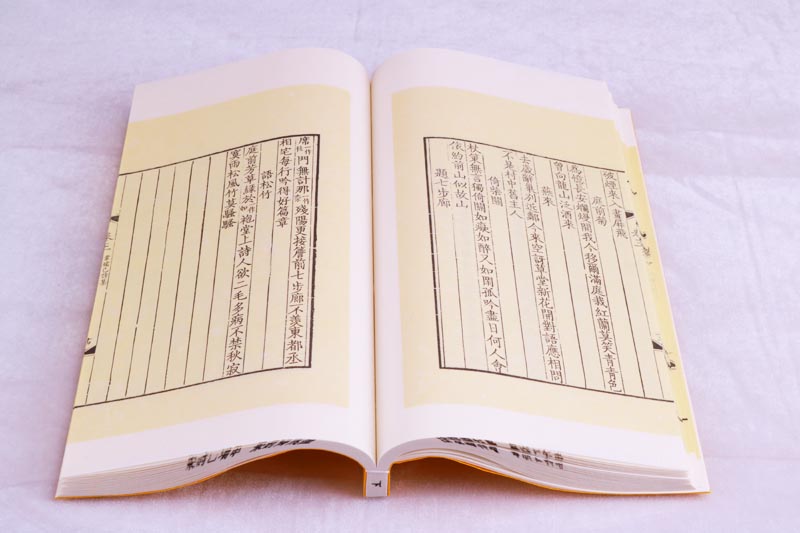 庭前菊
為憶長安爛熳開我今移爾滿庭栽紅蘭莫笑青青色
曾向龍山泛酒來
燕來
去歲辭巢別近鄰今來空訝草堂新花開對語應相問
不是村中舊主人
倚柴關
杖策無言獨倚關如癡如醉又如閑孤吟盡日何人會
依約前山似故山
題七步廊
席門無計那殘陽更接簷前七步廊不羨東都丞
相宅每行吟得好篇章
語松竹
庭前芳草綠於一作如袍堂上詩人欲二毛多病不禁秋寂
寞雨松風竹莫騷騷
下